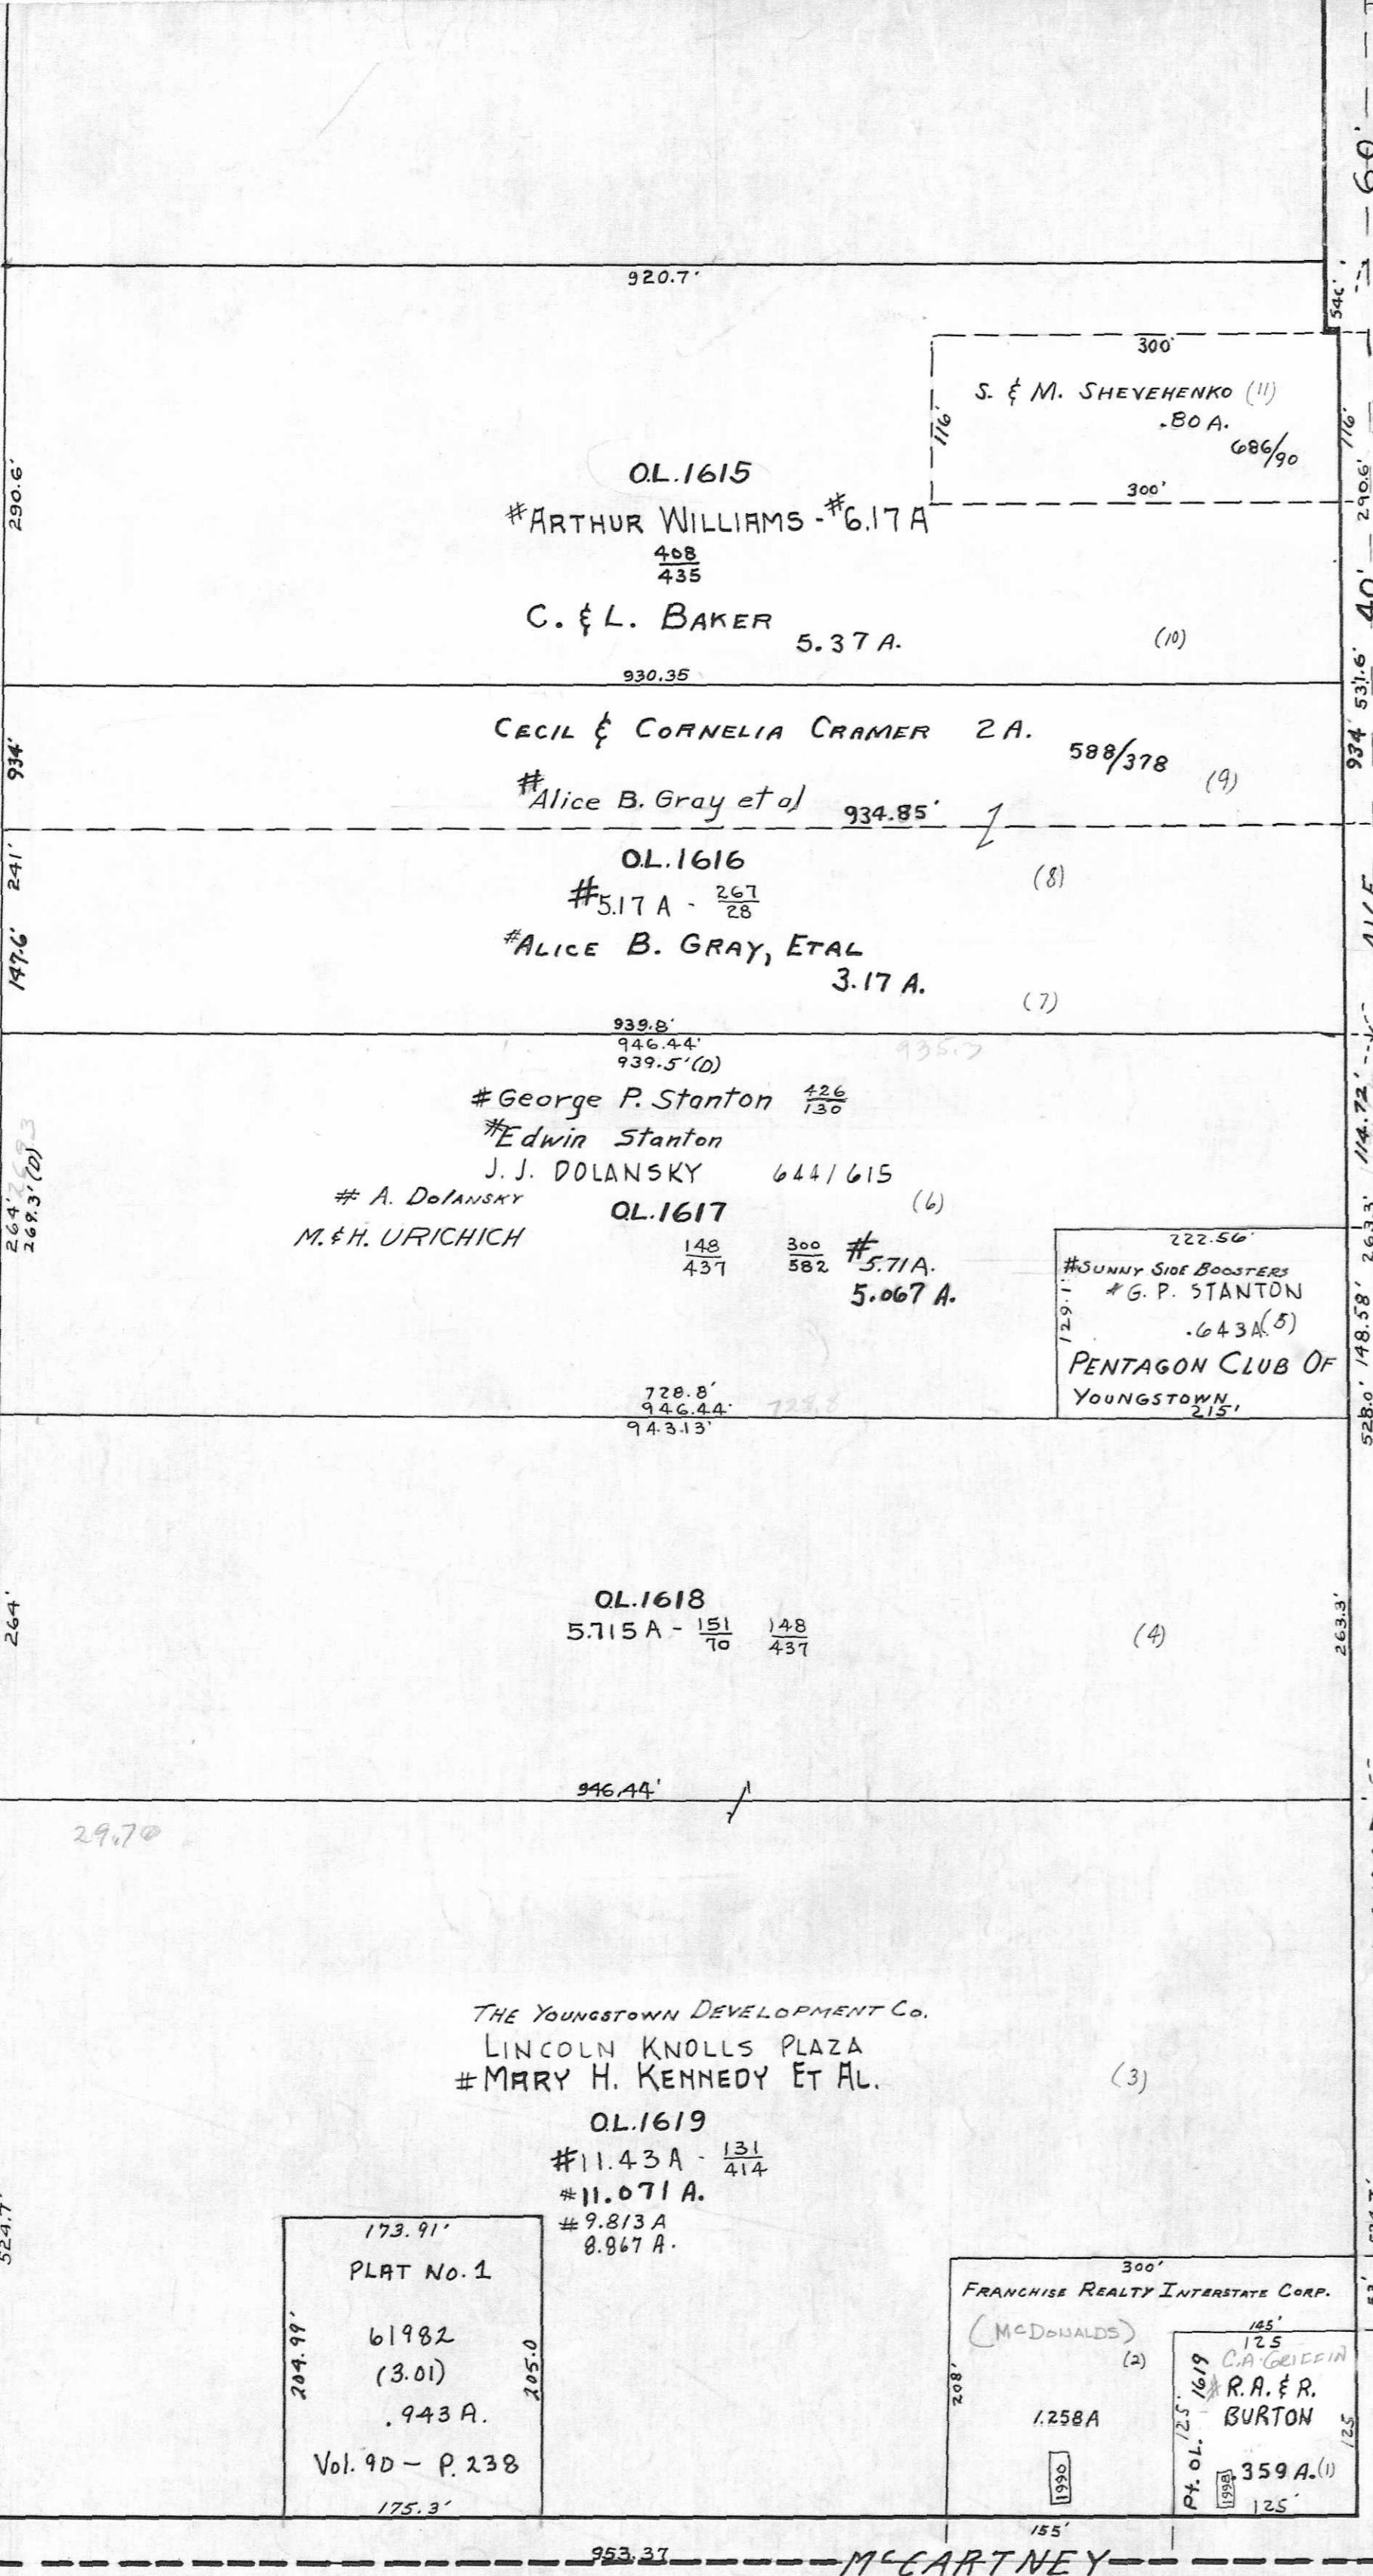 60'
920.7'
300'
S. & M. SHEVEHENKO (11)
.80 A.
686/90
116'
116'
300'
290.6'
290.6'
40'
O.L.1615
#ARTHUR WILLIAMS - #6.17 A
408
435
C. & L. BAKER
5.37 A.
(10)
930.35
531.6'
CECIL & CORNELIA CRAMER 2 A.
588/378
(9)
934'
934'
#Alice B. Gray et al
934.85'
O.L.1616
(8)
241'
#5.17 A - 267
28
#ALICE B. GRAY, ETAL
3.17 A.
147.6'
(7)
939.8'
946.44'
939.5'(D)
114.72'
#George P. Stanton 426
130
#Edwin Stanton
J. J. DOLANSKY 644/615
# A. DOLANSKY
(6)
O.L.1617
M. & H. URICHICH
264'
269.3'(D)
263.3'
148
437
300
582
#5.71A.
5.067 A.
222.56'
#SUNNY SIDE BOOSTERS
# G. P. STANTON
.643A.(5)
129.1'
PENTAGON CLUB OF
YOUNGSTOWN
215'
148.58'
528.0'
728.8'
728.8
946.44'
943.13'
O.L.1618
5.715 A - 151
70
148
437
(4)
264'
263.3'
946.44'
29.70
THE YOUNGSTOWN DEVELOPMENT CO.
LINCOLN KNOLLS PLAZA
#MARY H. KENNEDY ET AL.
(3)
O.L.1619
#11.43 A - 131
414
#11.071 A.
#9.813 A
8.867 A.
524.7'
173.91'
PLAT NO. 1
61982
(3.01)
.943 A.
Vol. 90 - P. 238
204.99'
205.0
175.3'
300'
FRANCHISE REALTY INTERSTATE CORP.
(McDONALDS)
(2)
208'
1.258A
1990
155'
145'
125
C.A. GRIFFIN
# R.A. & R.
BURTON
.359 A.(1)
125'
125
Pt. OL. 1619
125'
1998
953.37
McCARTNEY